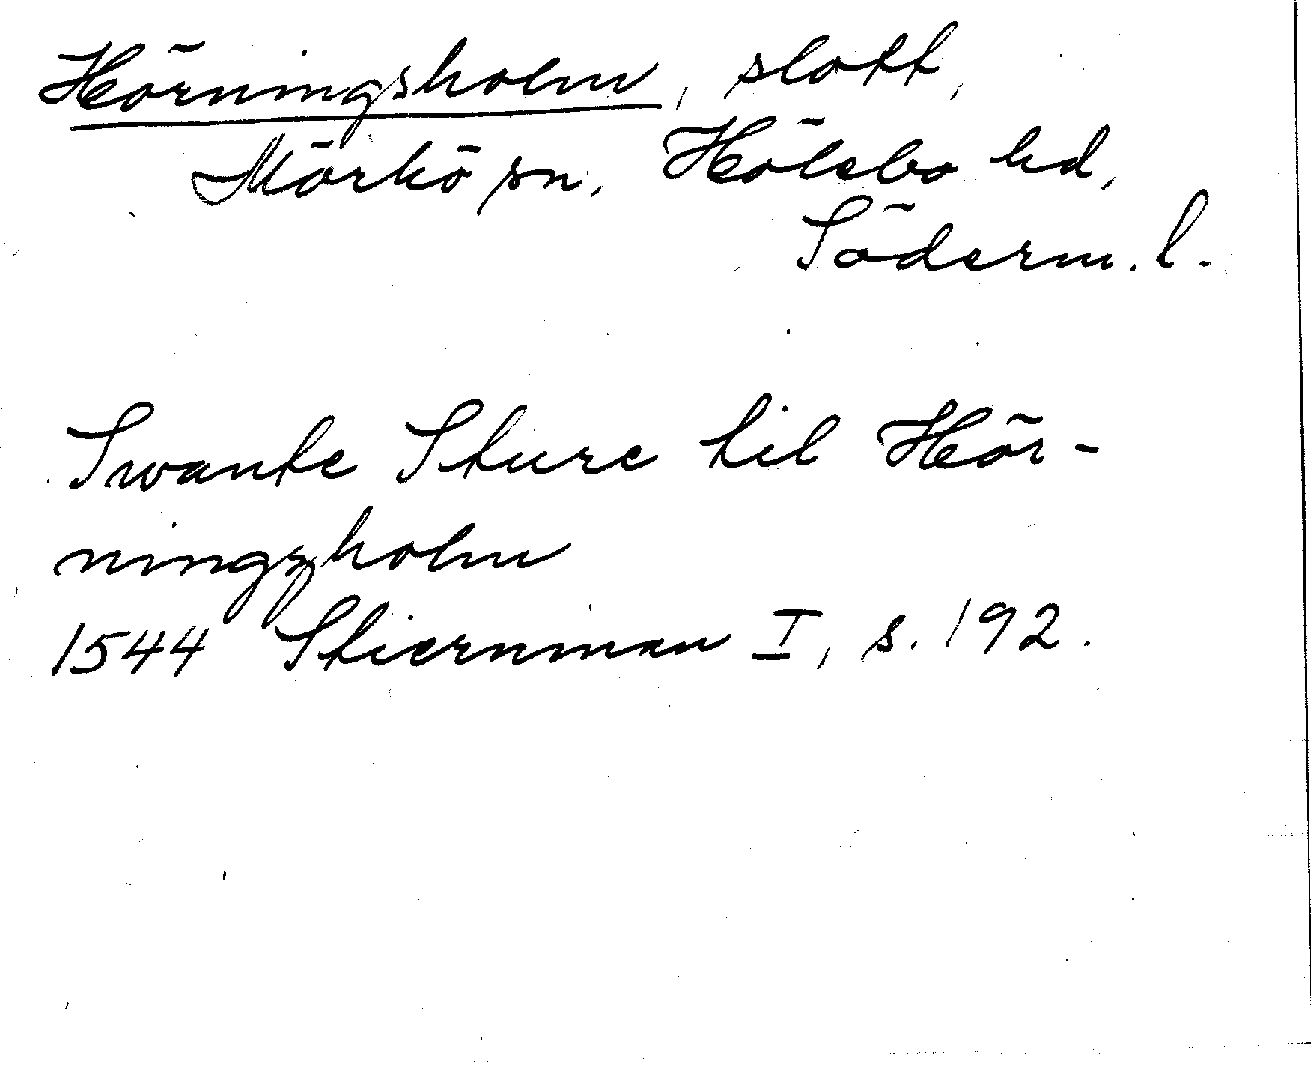 Hörningsholm, slott,
Mörkö sn, Hölebo hd,
Söderm. l.
Swante Sture til Hör-
ningzholm
1544 Stiernman I, s. 192.